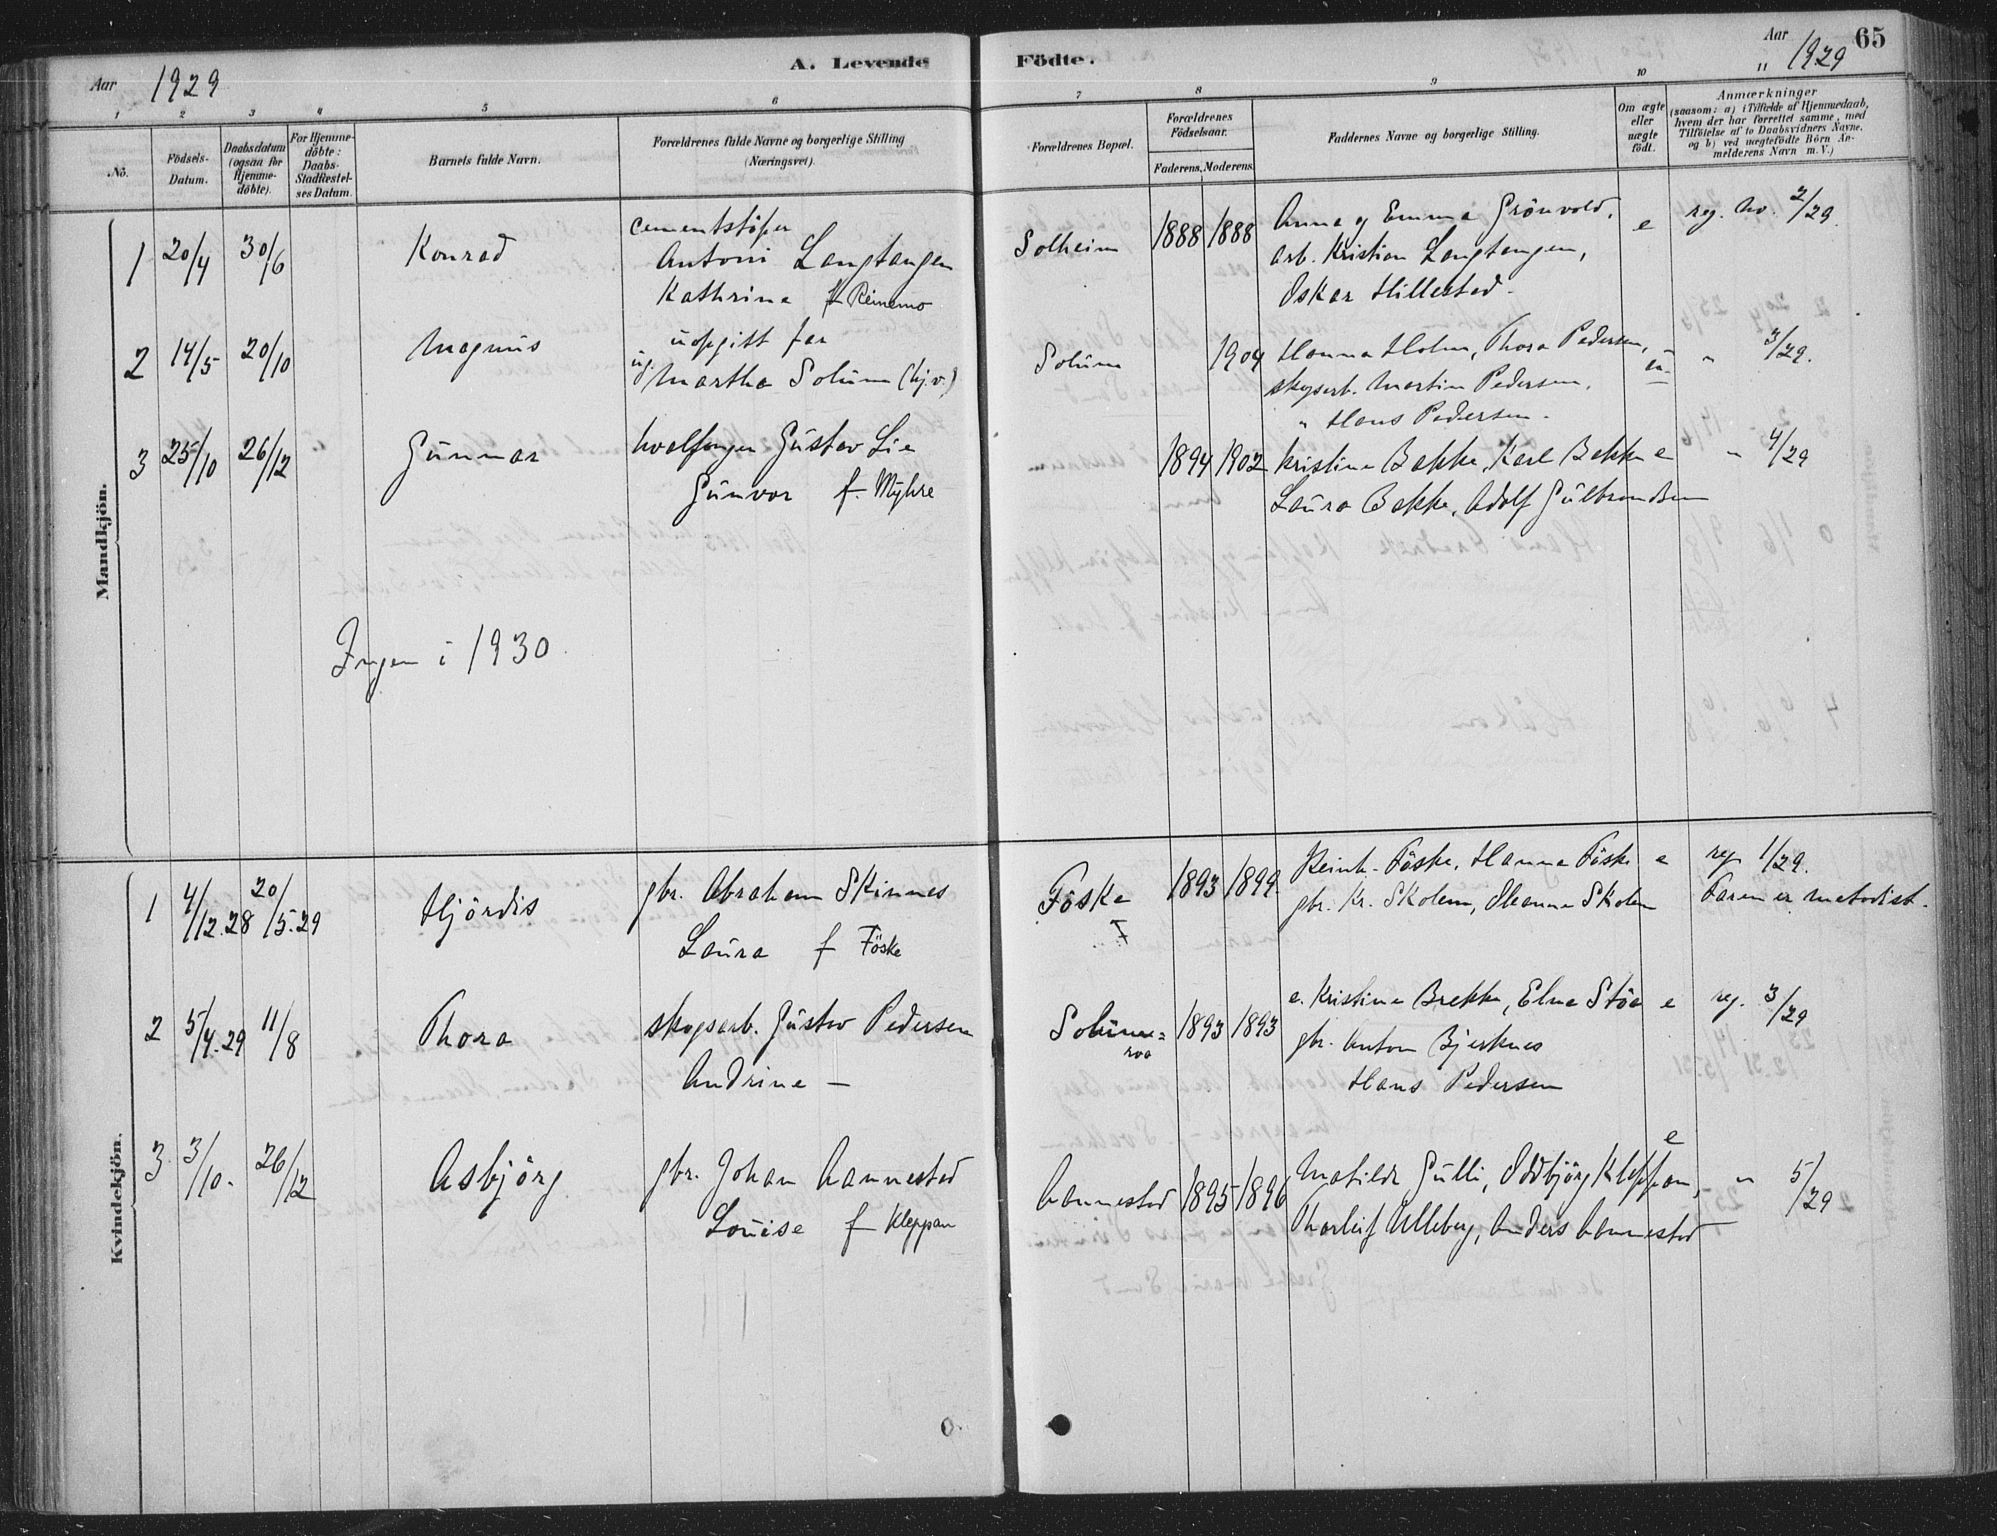 Aar 1929
A. Levende Födte.
Aar 1929
65
1 2 3 4 5 6 7 8 9 10 11
No.
Födsels-Datum.
Daabsdatum (ogsaa for Hjemme-döbte).
For Hjemme-döbte: Daabs-Stadfæstel-ses Datum.
Barnets fulde Navn.
Forældrenes fulde Navne og borgerlige Stilling (Næringsvei).
Forældrenes Bopæl.
Forældrenes Födselsaar.
Faderens. Moderens.
Faddernes Navne og borgerlige Stilling.
Om ægte eller uægte födt.
Anmærkninger
(saasom: a) i Tilfælde af Hjemmedaab,
hvem der har forrettet samme, med
Tilföielse af to Daabsvidners Navne.
og b) ved uægtefödte Börn An-
melderens Navn m. V.)
Mandkjön.
1 20/4 30/6 Konrad
cementstöper
Antoni Langtangen
Kathrina f. Reinemo
Solheim 1888 1888
Anna og Emma Grönvold,
arb. Kristian Langtangen,
Oskar Hillestad.
e reg. no. 2/29.
2 14/5 20/10 Magnus
uopgitt far
ug. Martha Solum (hj.v.)
Solum 1904
Hanna Holm, Thora Pedersen,
skogsarb. Martin Pedersen,
" Hans Pedersen.
u " 3/29.
3 25/10 26/12 Gunnar
hvalfanger Gustav Lie
Gunvor f. Myhre
1894 1902
Kristine Bakke, Karl Bakke e
Laura Bakke, Adolf Gulbrandsen
" 4/29
Ingen i 1930
Kvindekjön.
1 4/12.28 20/5.29 Hjördis
gbr. Abraham Skinnes
Laura f Föske
Föske 1893 1899
Reinh. Föske, Hanna Föske e
gbr. Kr. Skolem, Hanna Skolem
reg 1/29.
Faren er metodist.
2 5/4.29 11/8 Thora
skogsarb. Gustav Pedersen
Andrine —
Solum=
roa
1893 1893
e. Kristine Brekke, Elna Stöa e
gbr. Anton Bjerknes
Hans Pedersen
reg. 3/29
3 3/10. 26/12 Asbjörg
gbr. Johan Aannestad
Louise f Kleppan
Aannestad 1895 1896
Matilde Gulli, Oddbjörg Kleppan,
Thorleif Ulleberg, Anders Aannestad
e " 5/29